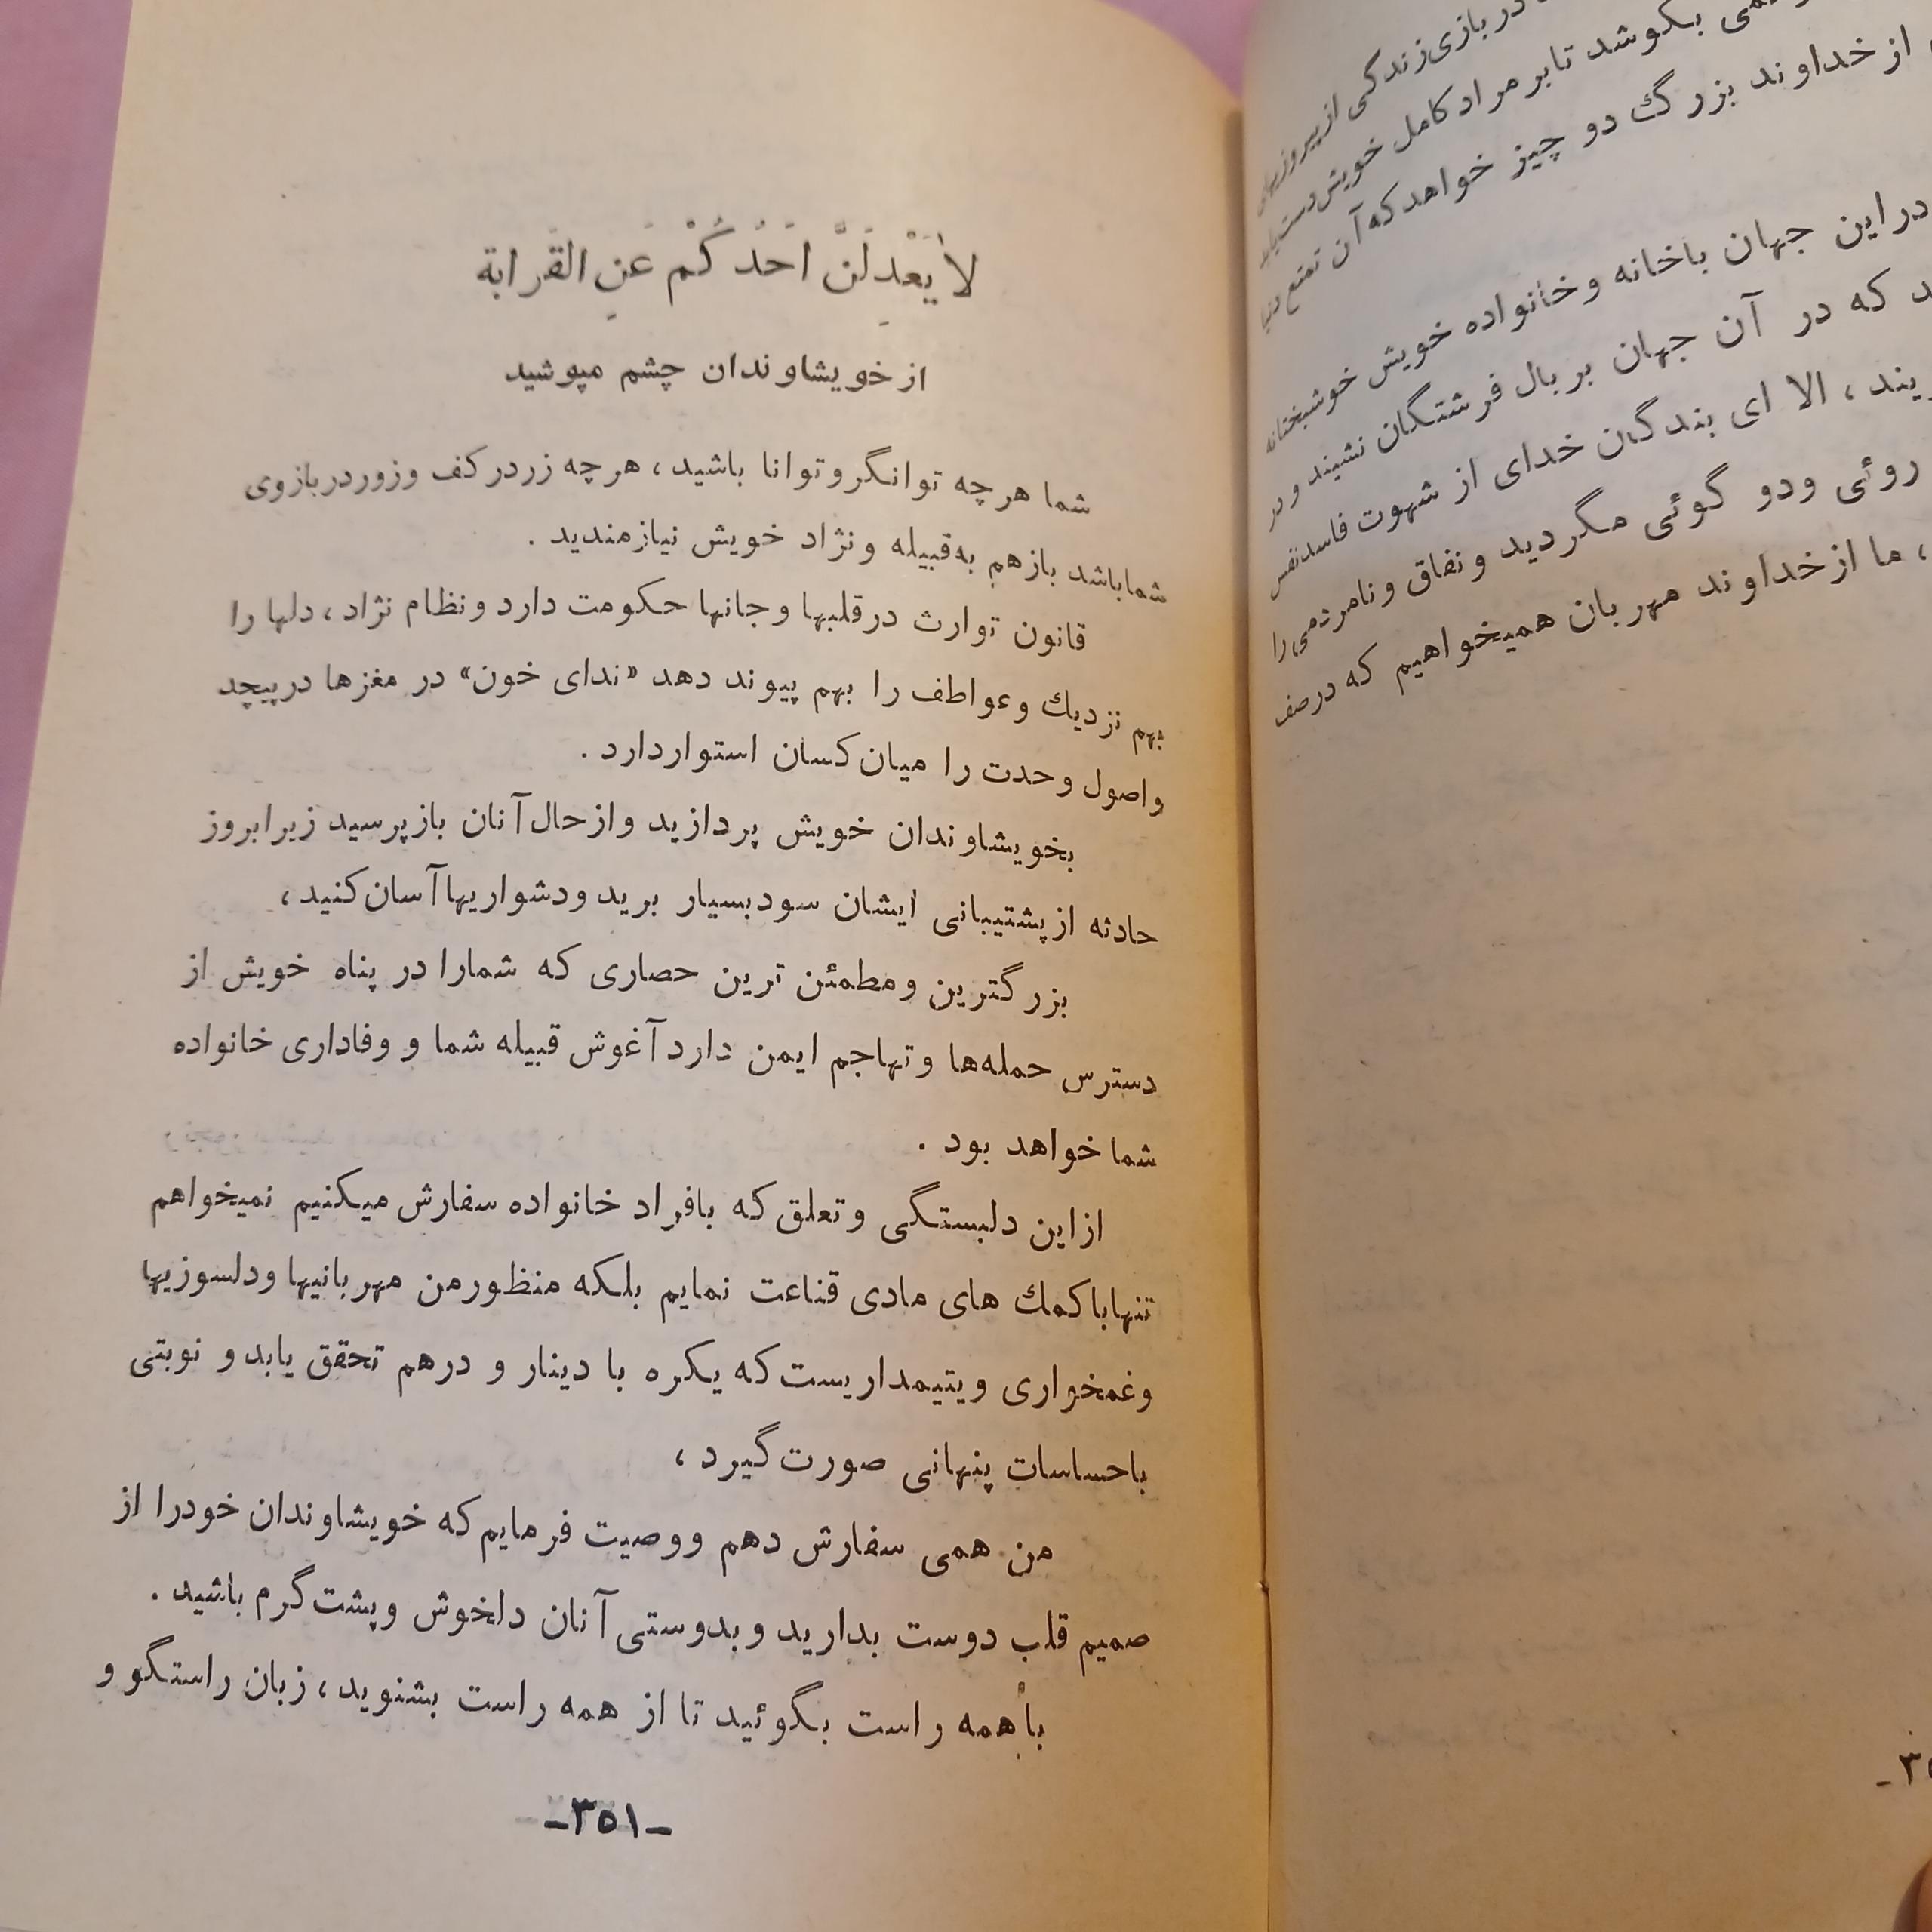 در بازی زندگی از
بکوشد تا بر مراد کامل خویش دست یابد
از خداوند بزرگ دو چیز خواهد که آن تمتع دنیا
در این جهان باخانه و خانواده خویش خوشبختانه
که در آن جهان بر بال فرشتگان نشیند و در
الا ای بندگان خدای از شهوت فاسد نفس
روئی ودو گوئی مگردید و نفاق و نامردمی را
، ما از خداوند مهربان همیخواهیم که در صف
لا يَعْدِلَنَّ اَحَدُكُمْ عَنِ القَرابة
از خویشاوندان چشم مپوشید
شما هر چه توانگر و توانا باشید ، هر چه زر در کف و زور در بازوی
شما باشد باز هم به قبیله و نژاد خویش نیازمندید .
قانون توارث در قلبها و جانها حکومت دارد و نظام نژاد ، دلها را
بهم نزدیك و عواطف را بهم پیوند دهد «ندای خون» در مغزها در پیچد
و اصول وحدت را میان کسان استوار دارد .
بخویشاوندان خویش پردازید و از حال آنان باز پرسید زیرا بروز
حادثه از پشتیبانی ایشان سود بسیار برید و دشواریها آسان کنید ،
بزرگترین و مطمئن ترین حصاری که شما را در پناه خویش از
دسترس حمله‌ها و تهاجم ایمن دارد آغوش قبیله شما و وفاداری خانواده
شما خواهد بود .
از این دلبستگی و تعلق که بافراد خانواده سفارش میکنیم نمیخواهم
تنها با کمك های مادی قناعت نمایم بلکه منظور من مهربانیها و دلسوزیها
و غمخواری و یتیمداریست که یکره با دینار و درهم تحقق یابد و نوبتی
باحساسات پنهانی صورت گیرد ،
من همی سفارش دهم و وصیت فرمایم که خویشاوندان خود را از
صمیم قلب دوست بدارید و بدوستی آنان دلخوش و پشت گرم باشید .
با همه راست بگوئید تا از همه راست بشنوید ، زبان راستگو و
-۳۵۱-